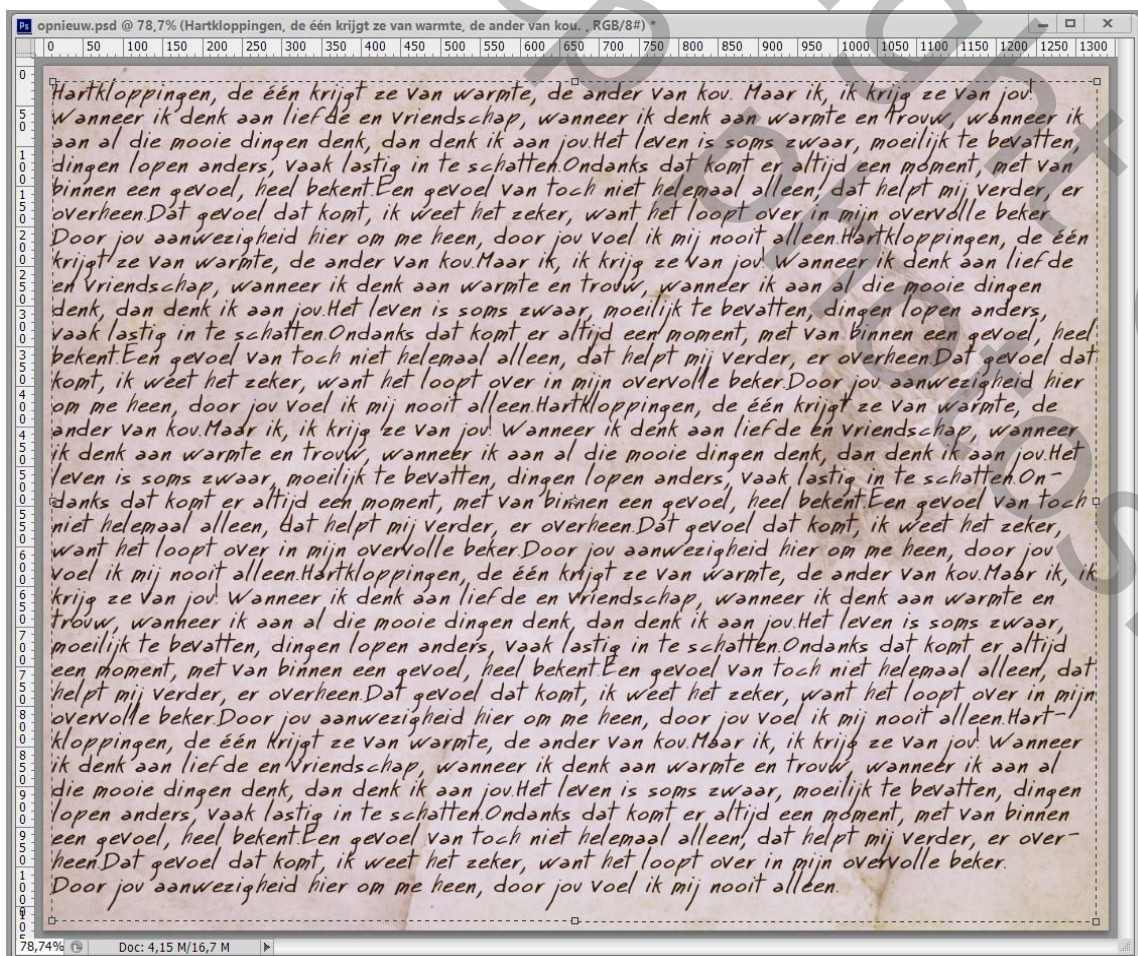 opnieuw.psd @ 78,7% (Hartkloppingen, de één krijgt ze van warmte, de ander van kou.. , RGB/8#) *
0 50 100 150 200 250 300 350 400 450 500 550 600 650 700 750 800 850 900 950 1000 1050 1100 1150 1200 1250 1300
Hartkloppingen, de één krijgt ze van warmte, de ander van kou. Maar ik, ik krijg ze van jou!
Wanneer ik denk aan liefde en vriendschap, wanneer ik denk aan warmte en trouw, wanneer ik
aan al die mooie dingen denk, dan denk ik aan jou.Het leven is soms zwaar, moeilijk te bevatten,
dingen lopen anders, vaak lastig in te schatten.Ondanks dat komt er altijd een moment, met van
binnen een gevoel, heel bekent.Een gevoel van toch niet helemaal alleen, dat helpt mij verder, er
overheen.Dat gevoel dat komt, ik weet het zeker, want het loopt over in mijn overvolle beker.
Door jou aanwezigheid hier om me heen, door jou voel ik mij nooit alleen.Hartkloppingen, de één
krijgt ze van warmte, de ander van kou.Maar ik, ik krijg ze van jou! Wanneer ik denk aan liefde
en vriendschap, wanneer ik denk aan warmte en trouw, wanneer ik aan al die mooie dingen
denk, dan denk ik aan jou.Het leven is soms zwaar, moeilijk te bevatten, dingen lopen anders,
vaak lastig in te schatten.Ondanks dat komt er altijd een moment, met van binnen een gevoel, heel
bekent.Een gevoel van toch niet helemaal alleen, dat helpt mij verder, er overheen.Dat gevoel dat
komt, ik weet het zeker, want het loopt over in mijn overvolle beker.Door jou aanwezigheid hier
om me heen, door jou voel ik mij nooit alleen.Hartkloppingen, de één krijgt ze van warmte, de
ander van kou.Maar ik, ik krijg ze van jou! Wanneer ik denk aan liefde en vriendschap, wanneer
ik denk aan warmte en trouw, wanneer ik aan al die mooie dingen denk, dan denk ik aan jou.Het
leven is soms zwaar, moeilijk te bevatten, dingen lopen anders, vaak lastig in te schatten.On-
danks dat komt er altijd een moment, met van binnen een gevoel, heel bekent.Een gevoel van toch
niet helemaal alleen, dat helpt mij verder, er overheen.Dat gevoel dat komt, ik weet het zeker,
want het loopt over in mijn overvolle beker.Door jou aanwezigheid hier om me heen, door jou
voel ik mij nooit alleen.Hartkloppingen, de één krijgt ze van warmte, de ander van kou.Maar ik, ik
krijg ze van jou! Wanneer ik denk aan liefde en vriendschap, wanneer ik denk aan warmte en
trouw, wanneer ik aan al die mooie dingen denk, dan denk ik aan jou.Het leven is soms zwaar,
moeilijk te bevatten, dingen lopen anders, vaak lastig in te schatten.Ondanks dat komt er altijd
een moment, met van binnen een gevoel, heel bekent.Een gevoel van toch niet helemaal alleen, dat
helpt mij verder, er overheen.Dat gevoel dat komt, ik weet het zeker, want het loopt over in mijn
overvolle beker.Door jou aanwezigheid hier om me heen, door jou voel ik mij nooit alleen.Hart-
kloppingen, de één krijgt ze van warmte, de ander van kou.Maar ik, ik krijg ze van jou! Wanneer
ik denk aan liefde en vriendschap, wanneer ik denk aan warmte en trouw, wanneer ik aan al
die mooie dingen denk, dan denk ik aan jou.Het leven is soms zwaar, moeilijk te bevatten, dingen
lopen anders, vaak lastig in te schatten.Ondanks dat komt er altijd een moment, met van binnen
een gevoel, heel bekent.Een gevoel van toch niet helemaal alleen, dat helpt mij verder, er over-
heen.Dat gevoel dat komt, ik weet het zeker, want het loopt over in mijn overvolle beker.
Door jou aanwezigheid hier om me heen, door jou voel ik mij nooit alleen.
78,74% Doc: 4,15 M/16,7 M